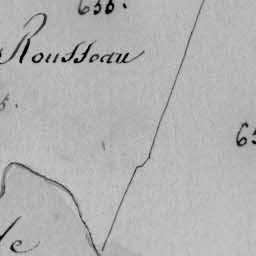 655.
Rousseau
5.
65
le